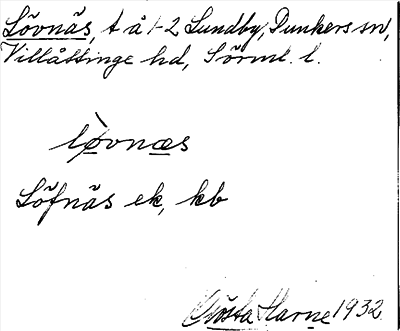 Lövnäs, t å 1-2 Lundby, Dunkers sn,
Villåttinge hd, Sörml. l.
lòvnæs
Löfnäs ek, kb
Gösta Harne 1932